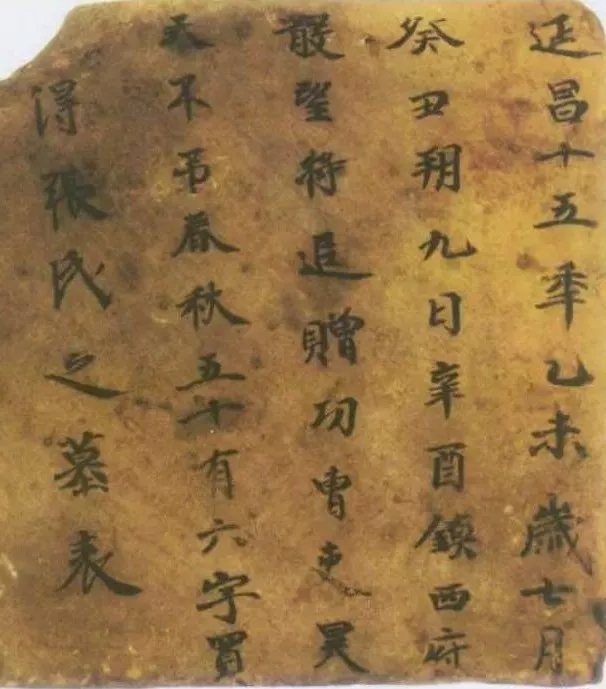 延昌十五年乙未歲七月
癸丑朔九日辛酉鎮西府
散望将追贈功曹吏昊
天不弔春秋五十有六字買
得張氏之墓表